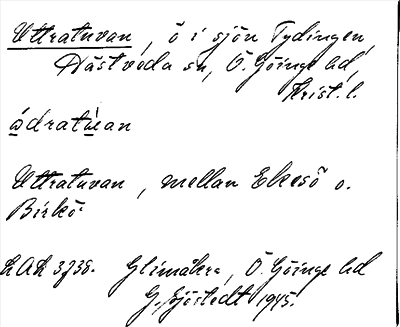 Uttratuvan, ö i sjön Tydingen,
Hästveda sn, Ö. Göinge hd,
Krist. l.
ådratùan
Uttratuvan, mellan Ekesö o.
Birkö.
LAL 3738. Glimåkra, Ö. Göinge hd
G. Sjöstedt 1945.